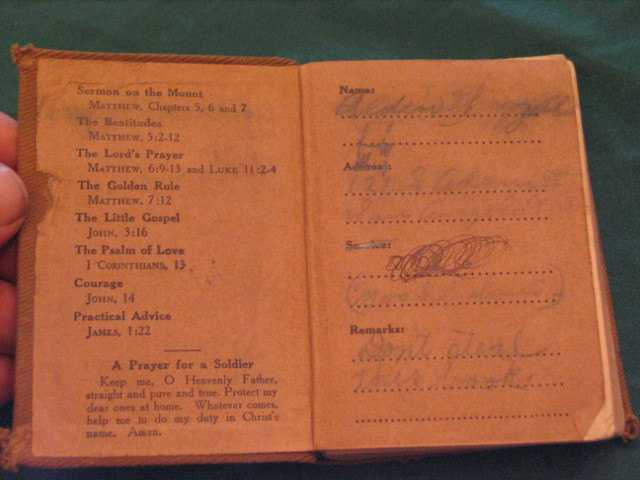 Sermon on the Mount
Matthew, Chapters 5, 6 and 7
The Beatitudes
Matthew, 5:2-12
The Lord's Prayer
Matthew, 6:9-13 and Luke 11:2-4
The Golden Rule
Matthew, 7:12
The Little Gospel
John, 3:16
The Psalm of Love
1 Corinthians, 13
Courage
John, 14
Practical Advice
James, 1:22
A Prayer for a Soldier
Keep me, O Heavenly Father,
straight and pure and true. Protect my
dear ones at home. Whatever comes,
help me to do my duty in Christ's
name. Amen.
Name:
Address:
Service:
Remarks:
Don't steal
this book.